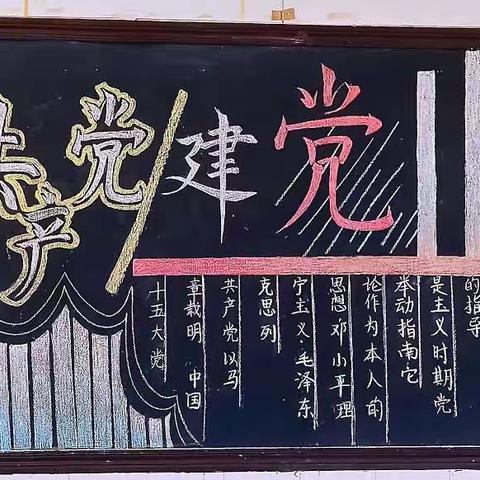 共产党
建党
十五大党
章载明 中国
共产党以马
克思列
宁主义·毛泽东
思想 邓小平理
论作为本人的
举动指南它
是主义时期党
的指导